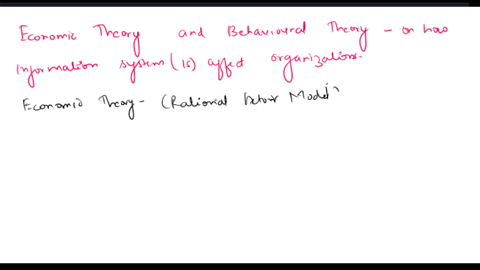 Economic Theory and Behavioural Theory - on how
Information system (Is) affect organizations.
Economic Theory - (Rational Actor Model)